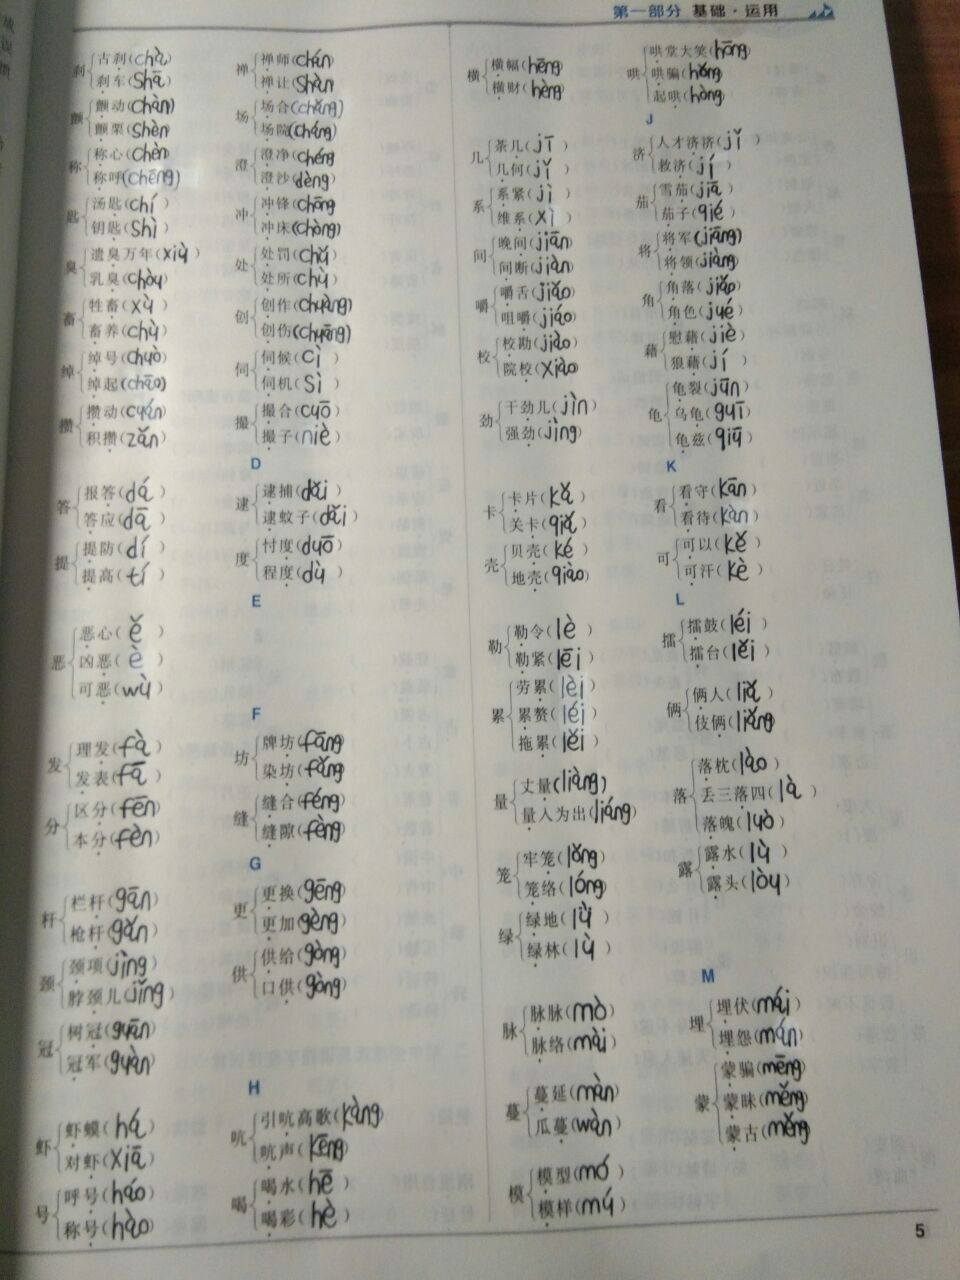 第一部分 基础·运用
刹
古刹(chà)
刹车(Shā)
颤
颤动(chàn)
颤栗(Shèn)
称
称心(chèn)
称呼(chēng)
匙
汤匙(chí)
钥匙(Shì)
臭
遗臭万年(xiù)
乳臭(chòu)
畜
牲畜(xù)
畜养(chù)
绰
绰号(chuò)
绰起(chāo)
攒
攒动(cuán)
积攒(zǎn)
禅
禅师(chán)
禅让(Shàn)
场
场合(chǎng)
场院(cháng)
澄
澄净(chéng)
澄沙(dèng)
冲
冲锋(chōng)
冲床(chòng)
处
处罚(chǔ)
处所(chù)
创
创作(chuàng)
创伤(chuāng)
伺
伺候(cì)
伺机(Sì)
撮
撮合(cuō)
撮子(niè)
D
答
报答(dá)
答应(dā)
提
提防(dí)
提高(tí)
逮
逮捕(dǎi)
逮蚊子(dǎi)
度
忖度(duō)
程度(dù)
E
恶
恶心(ě)
凶恶(è)
可恶(wù)
F
发
理发(fà)
发表(fā)
分
区分(fēn)
本分(fèn)
坊
牌坊(fāng)
染坊(fǎng)
缝
缝合(féng)
缝隙(fèng)
G
杆
栏杆(gān)
枪杆(gǎn)
颈
颈项(jìng)
脖颈儿(jǐng)
冠
树冠(guān)
冠军(guàn)
更
更换(gēng)
更加(gèng)
供
供给(gòng)
口供(gòng)
H
虾
虾蟆(há)
对虾(xiā)
号
呼号(háo)
称号(hào)
吭
引吭高歌(kàng)
吭声(kēng)
喝
喝水(hē)
喝彩(hè)
横
横幅(hēng)
横财(hèng)
哄
哄堂大笑(hōng)
哄骗(hǒng)
起哄(hòng)
J
几
茶几(jī)
几何(jǐ)
系
系紧(jì)
维系(xì)
间
晚间(jiān)
间断(jiàn)
嚼
嚼舌(jiǎo)
咀嚼(jiáo)
校
校勘(jiào)
院校(xiào)
劲
干劲儿(jìn)
强劲(jìng)
济
人才济济(jǐ)
救济(jí)
茄
雪茄(jiā)
茄子(qié)
将
将军(jiāng)
将领(jiàng)
角
角落(jiǎo)
角色(jué)
藉
慰藉(jiè)
狼藉(jí)
龟
龟裂(jūn)
乌龟(guī)
龟兹(qiū)
K
卡
卡片(kǎ)
关卡(qiǎ)
壳
贝壳(ké)
地壳(qiào)
看
看守(kān)
看待(kàn)
可
可以(kě)
可汗(kè)
L
勒
勒令(lè)
勒紧(lēi)
累
劳累(lèi)
累赘(léi)
拖累(lěi)
量
丈量(liàng)
量入为出(liáng)
笼
牢笼(lǒng)
笼络(lóng)
绿
绿地(lǜ)
绿林(lù)
擂
擂鼓(léi)
擂台(lěi)
俩
俩人(liǎ)
伎俩(liǎng)
落
落枕(lào)
丢三落四(là)
落魄(luò)
露
露水(lù)
露头(lòu)
M
脉
脉脉(mò)
脉络(mài)
蔓
蔓延(màn)
瓜蔓(wàn)
模
模型(mó)
模样(mú)
埋
埋伏(mái)
埋怨(mán)
蒙
蒙骗(mēng)
蒙昧(měng)
蒙古(měng)
5